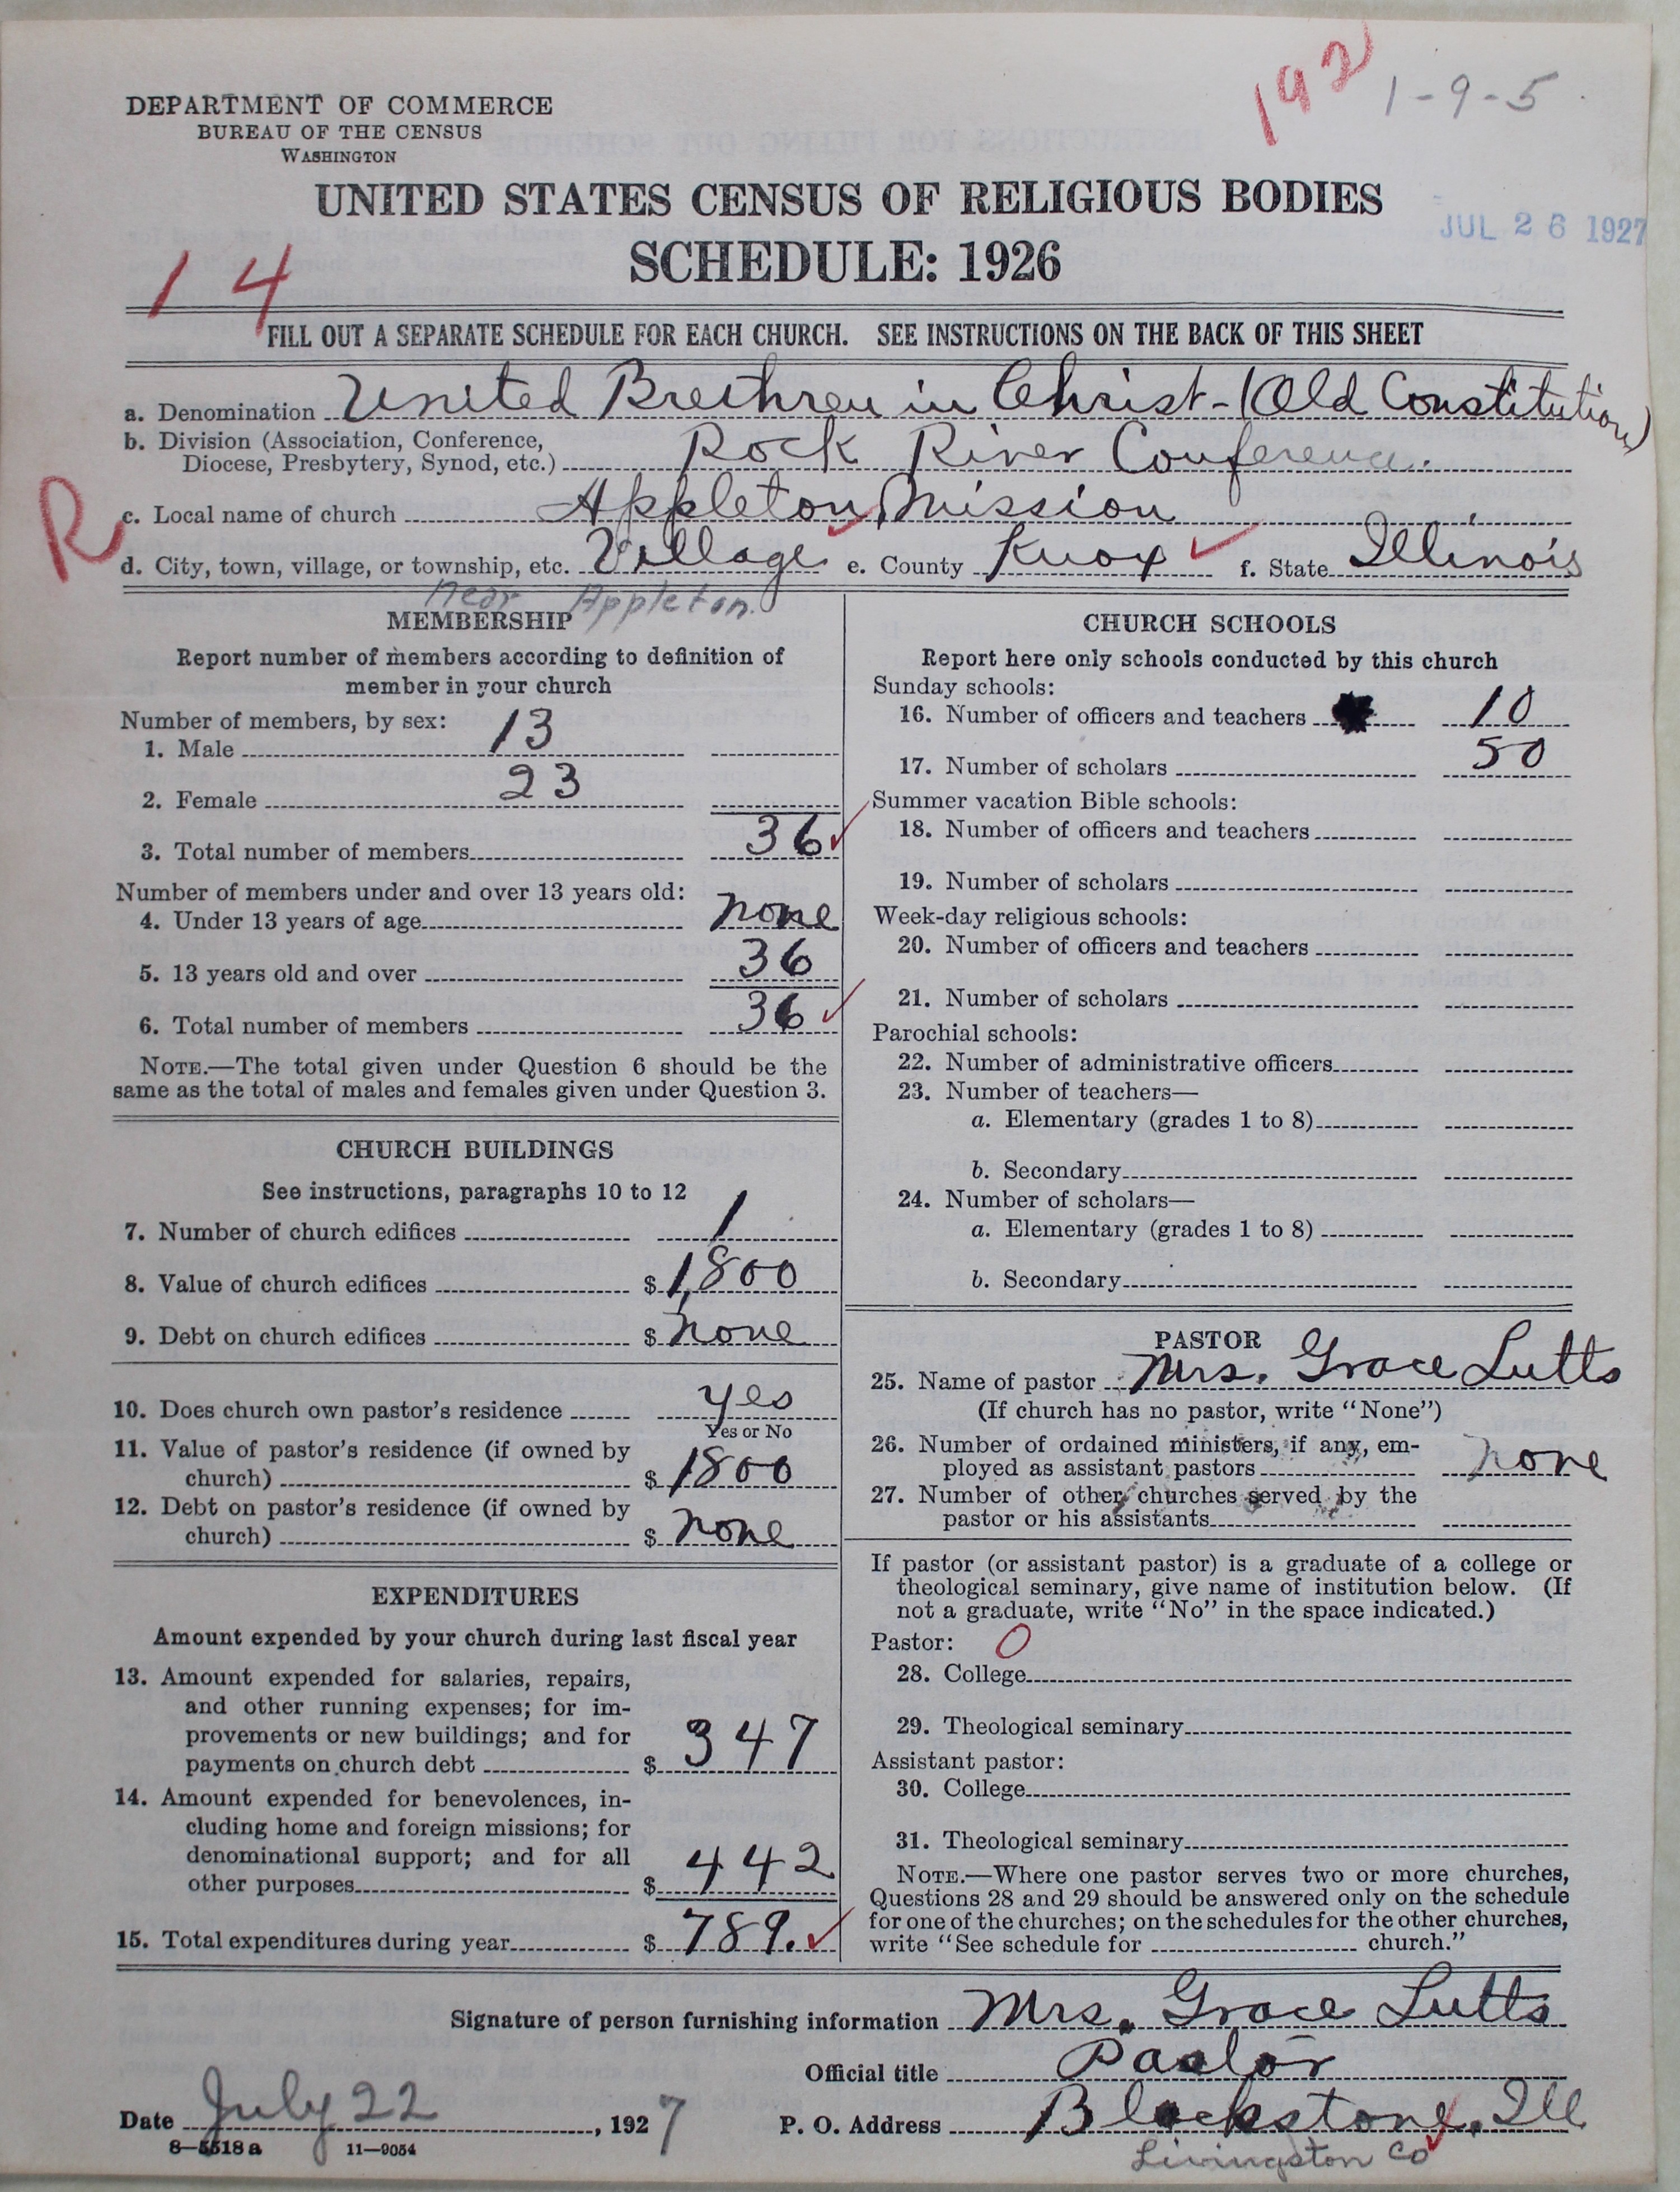 192
1-9-5
DEPARTMENT OF COMMERCE
BUREAU OF THE CENSUS
WASHINGTON
UNITED STATES CENSUS OF RELIGIOUS BODIES
JUL 26 1927
SCHEDULE: 1926
14
FILL OUT A SEPARATE SCHEDULE FOR EACH CHURCH. SEE INSTRUCTIONS ON THE BACK OF THIS SHEET
a. Denomination United Brethren in Christ-(Old Constitution)
b. Division (Association, Conference,
Diocese, Presbytery, Synod, etc.) Rock River Conference.
R
c. Local name of church Appleton, Mission
d. City, town, village, or township, etc. Village e. County Knox f. State Illinois
near Appleton.
MEMBERSHIP
Report number of members according to definition of
member in your church
Number of members, by sex:
1. Male 13
2. Female 23
3. Total number of members 36
Number of members under and over 13 years old:
4. Under 13 years of age none
5. 13 years old and over 36
6. Total number of members 36
NOTE.—The total given under Question 6 should be the
same as the total of males and females given under Question 3.
CHURCH BUILDINGS
See instructions, paragraphs 10 to 12
7. Number of church edifices 1
8. Value of church edifices $ 1,800
9. Debt on church edifices $ none
10. Does church own pastor's residence yes
Yes or No
11. Value of pastor's residence (if owned by
church) $ 1800
12. Debt on pastor's residence (if owned by
church) $ none
EXPENDITURES
Amount expended by your church during last fiscal year
13. Amount expended for salaries, repairs,
and other running expenses; for im-
provements or new buildings; and for
payments on church debt $ 347
14. Amount expended for benevolences, in-
cluding home and foreign missions; for
denominational support; and for all
other purposes $ 442
15. Total expenditures during year $ 789.
CHURCH SCHOOLS
Report here only schools conducted by this church
Sunday schools:
16. Number of officers and teachers 10
17. Number of scholars 50
Summer vacation Bible schools:
18. Number of officers and teachers
19. Number of scholars
Week-day religious schools:
20. Number of officers and teachers
21. Number of scholars
Parochial schools:
22. Number of administrative officers
23. Number of teachers—
a. Elementary (grades 1 to 8)
b. Secondary
24. Number of scholars—
a. Elementary (grades 1 to 8)
b. Secondary
PASTOR
25. Name of pastor Mrs. Grace Lutts
(If church has no pastor, write "None")
26. Number of ordained ministers, if any, em-
ployed as assistant pastors none
27. Number of other churches served by the
pastor or his assistants
If pastor (or assistant pastor) is a graduate of a college or
theological seminary, give name of institution below. (If
not a graduate, write "No" in the space indicated.)
Pastor: 0
28. College
29. Theological seminary
Assistant pastor:
30. College
31. Theological seminary
NOTE.—Where one pastor serves two or more churches,
Questions 28 and 29 should be answered only on the schedule
for one of the churches; on the schedules for the other churches,
write "See schedule for church."
Signature of person furnishing information Mrs. Grace Lutts
Official title Pastor
Date July 22, 1927 P. O. Address Blackstone, Ill
8-5518a 11-9054
Livingston Co